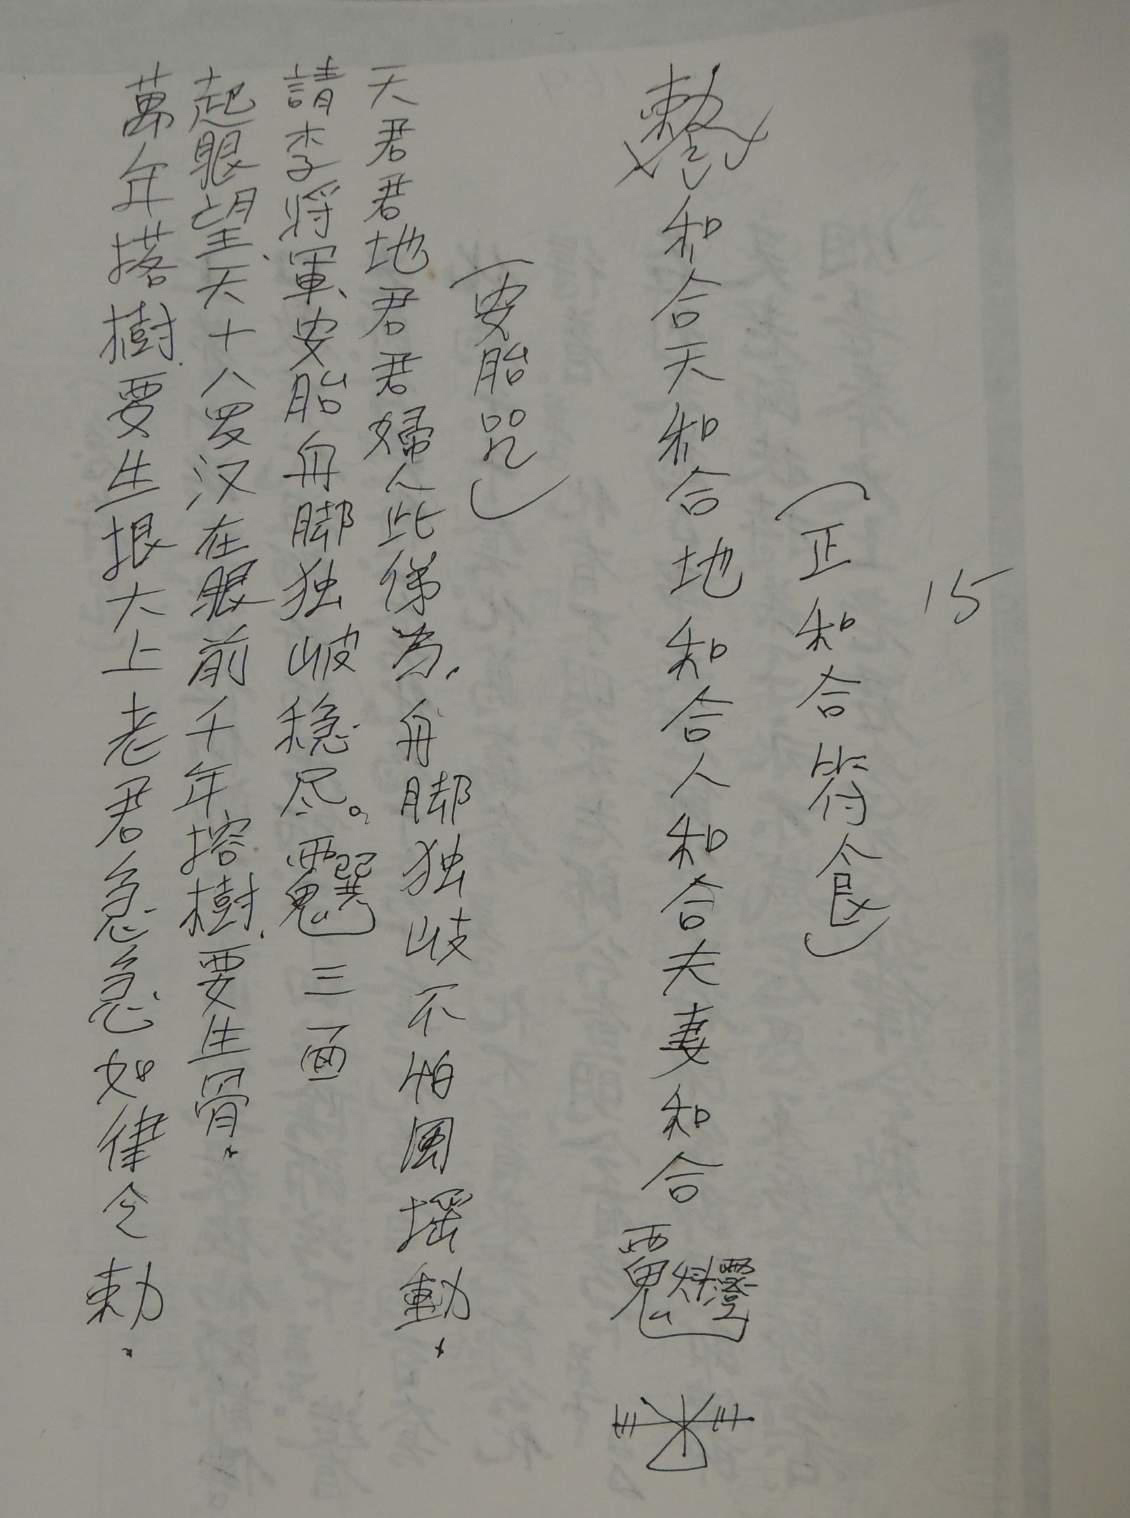 15
(正和合符食)
和合天和合地和合人和合夫妻和合
(安胎咒)
天君君地君君婦人此偹為.舟脚独岐不怕風搖動.
請李將軍、安胎舟脚独岐稳尽。三面
起眼望天十八罗汉在眼前千年搈樹.要生骨.
萬年搭樹.要生拫大上老君急急如律令勅.